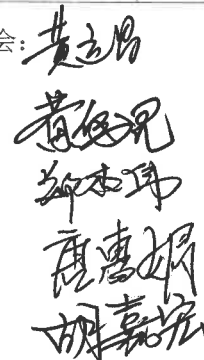 会：黄立昌
黄俊琨
郑杰伟
唐惠娟
胡嘉宏